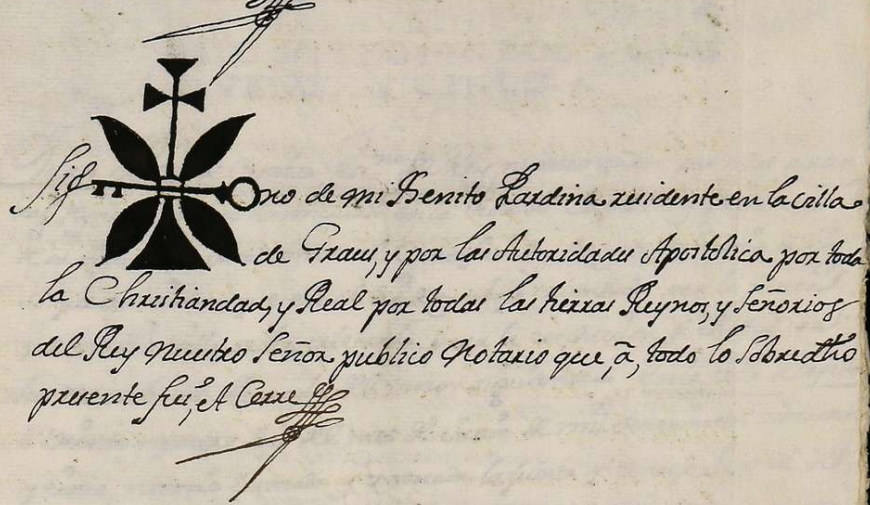 Sig no de mi Benito Lardina residente en la villa
de Graus, y por las Autoridades Apostolica por toda
la Christiandad, y Real por todas las tierras Reynos, y Señorios
del Rey Nuestro Señor publico Notario que, â, todo lo sobredho
presente fui, et Cerre